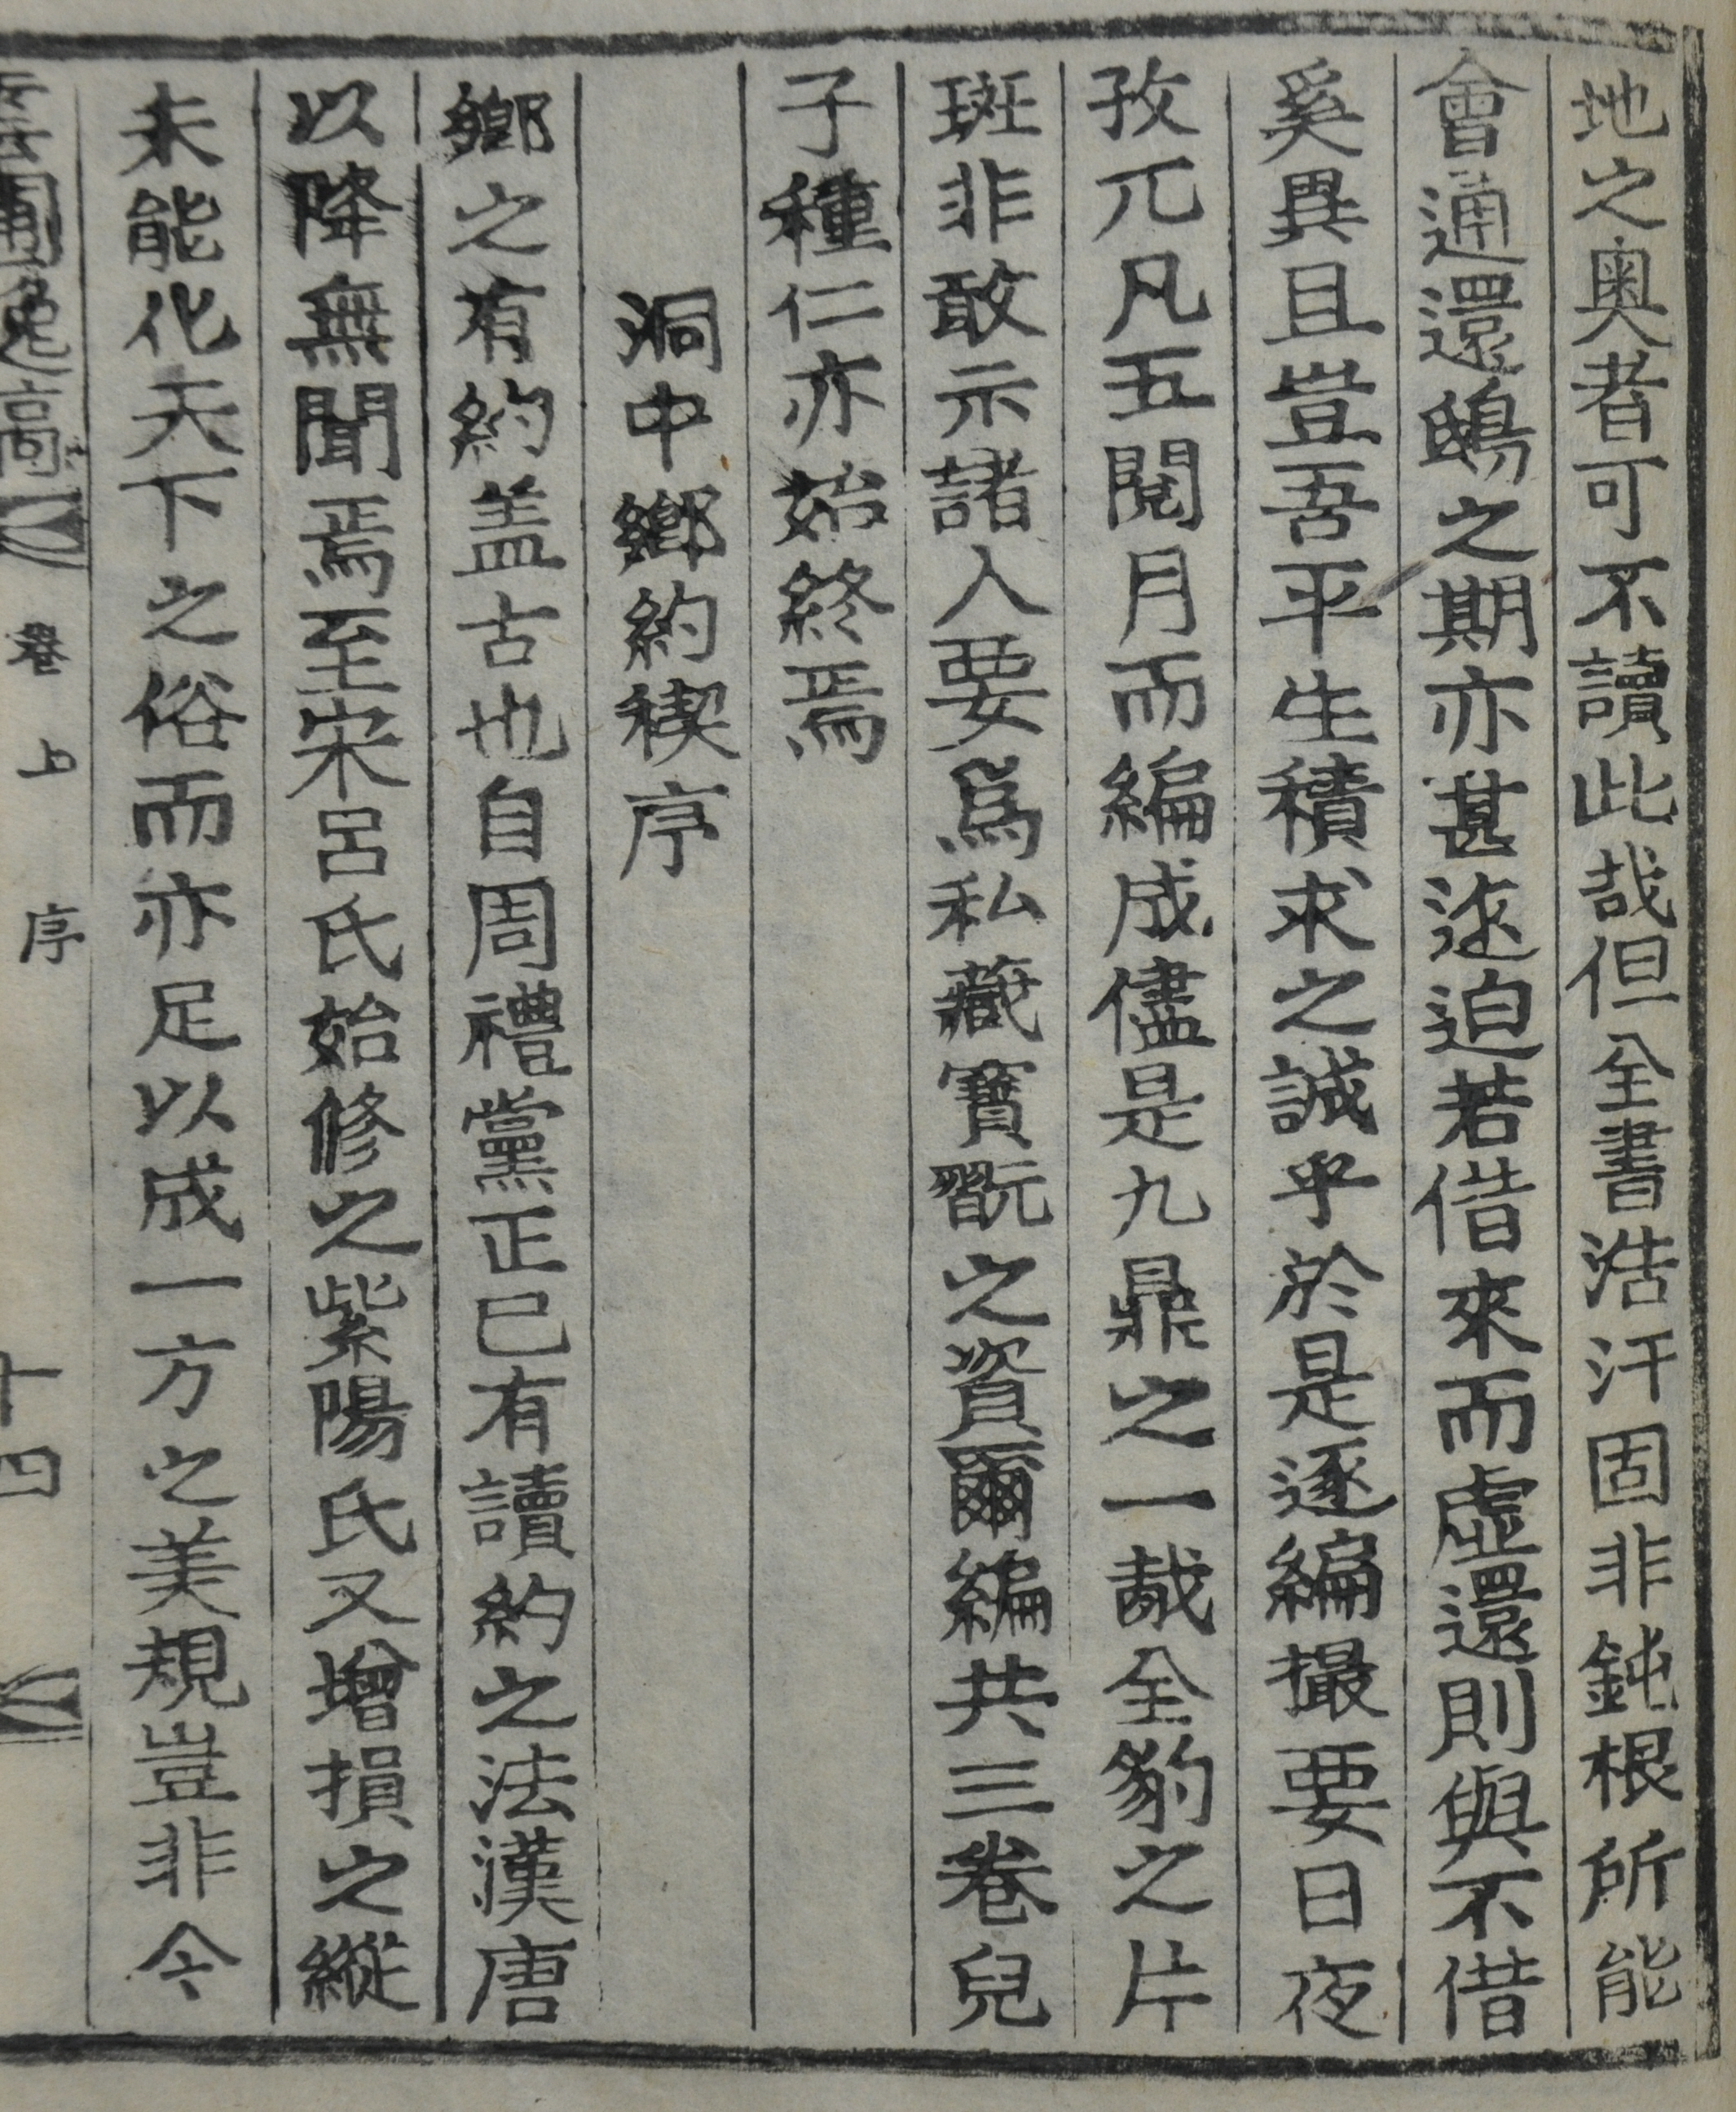 地之奧者可不讀此哉但全書浩汗固非鈍根所能
會通還鴟之期亦甚迩迫若借來而虛還則與不借
奚異且豈吾平生積求之誠乎於是逐編撮要日夜
孜兀凡五閱月而編成儘是九鼎之一胾全豹之片
斑非敢示諸人要爲私藏寶翫之資爾編共三卷兒
子種仁亦始終焉
洞中鄉約稧序
鄉之有約盖古也自周禮黨正已有讀約之法漢唐
以降無聞焉至宋呂氏始修之紫陽氏又增損之縱
未能化天下之俗而亦足以成一方之美規豈非今
卷上 序 十四